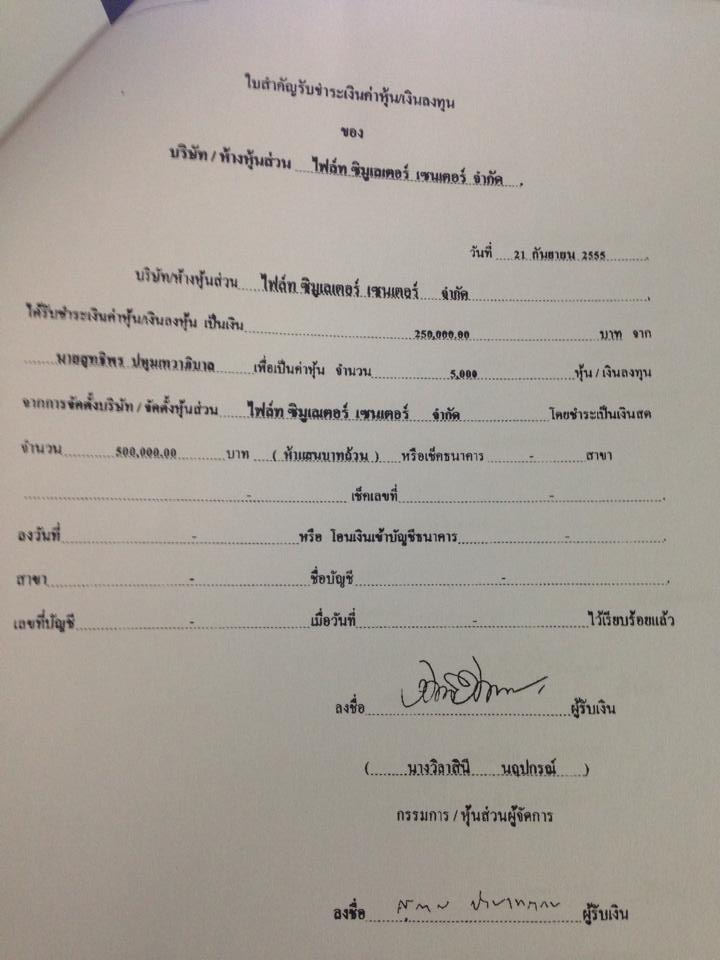 ใบสำคัญรับชำระเงินค่าหุ้น/เงินลงทุน
ของ
บริษัท / ห้างหุ้นส่วน ไฟล์ท ซิมูเลเตอร์ เซนเตอร์ จำกัด
วันที่ 21 กันยายน 2555
บริษัท/ห้างหุ้นส่วน ไฟล์ท ซิมูเลเตอร์ เซนเตอร์ จำกัด
ได้รับชำระเงินค่าหุ้น/เงินลงหุ้น เป็นเงิน 250,000.00 บาท จาก
นายสุทธิพร ปทุมเทวาภิบาล เพื่อเป็นค่าหุ้น จำนวน 5,000 หุ้น / เงินลงทุน
จากการจัดตั้งบริษัท / จัดตั้งหุ้นส่วน ไฟล์ท ซิมูเลเตอร์ เซนเตอร์ จำกัด โดยชำระเป็นเงินสด
จำนวน 500,000.00 บาท ( ห้าแสนบาทถ้วน ) หรือเช็คธนาคาร - สาขา
- เช็คเลขที่ -
ลงวันที่ - หรือ โอนเงินเข้าบัญชีธนาคาร -
สาขา - ชื่อบัญชี -
เลขที่บัญชี - เมื่อวันที่ - ไว้เรียบร้อยแล้ว
ลงชื่อ ผู้รับเงิน
( นางวิลาสินี นฤปกรณ์ )
กรรมการ / หุ้นส่วนผู้จัดการ
ลงชื่อ ผู้รับเงิน